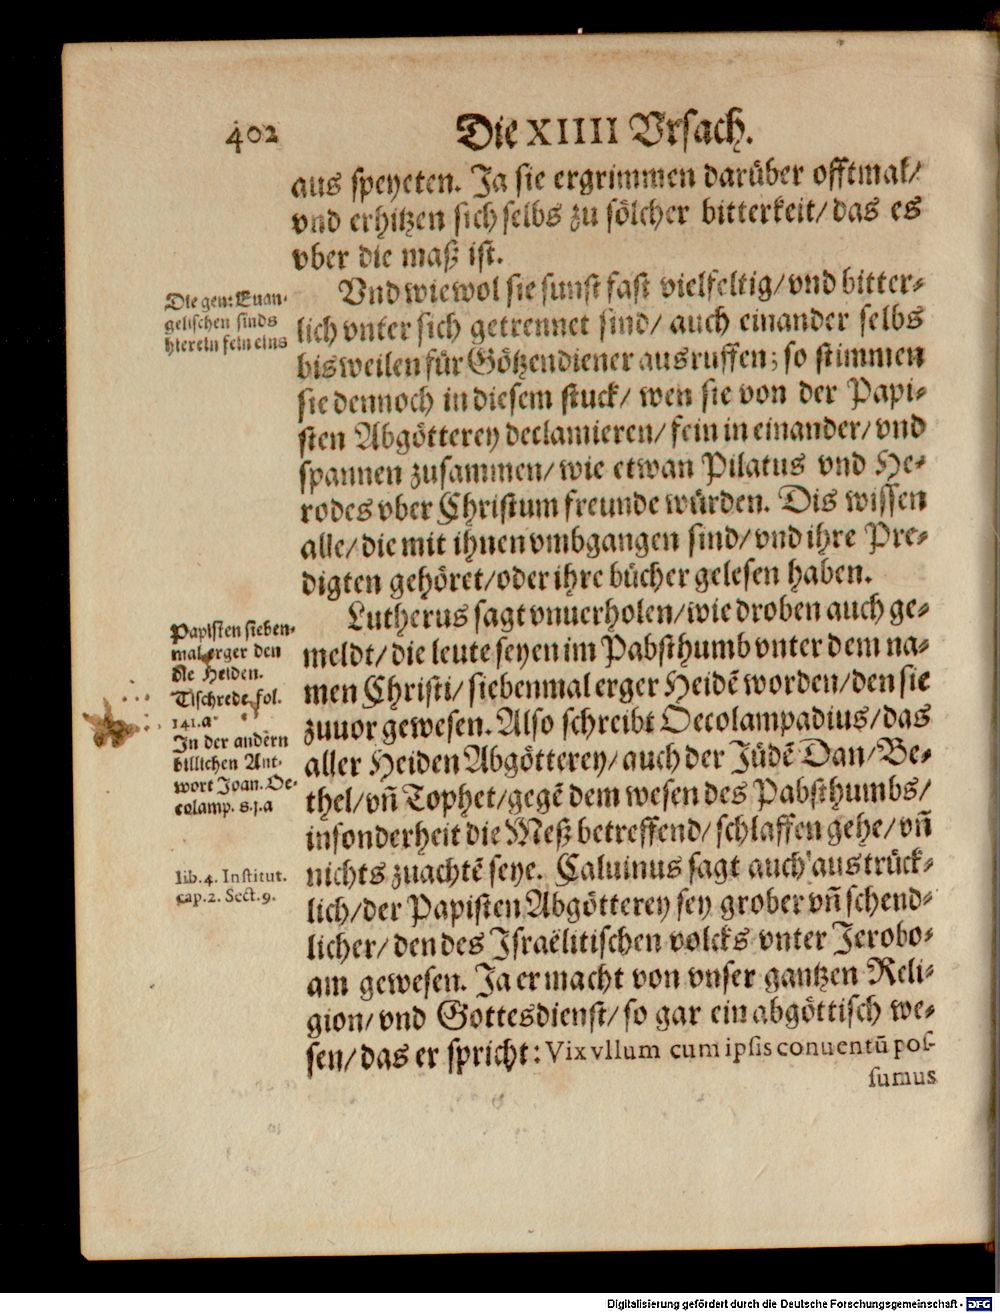 402
Die XIIII Vrsach.
aus speyeten. Ja sie ergrimmen darüber offtmal/
vnd erhitzen sich selbs zu sölcher bitterkeit/ das es
vber die maß ist.
Die gen: Euan-
gelischen sinds
hierein fein eins
Vnd wiewol sie sunst fast vielfeltig/ vnd bitter-
lich vnter sich getrennet sind/ auch einander selbs
bisweilen für Götzendiener ausruffen; so stimmen
sie dennoch in diesem stuck/ wen sie von der Papi-
sten Abgötterey declamieren/ fein in einander/ vnd
spannen zusammen/ wie etwan Pilatus vnd He-
rodes vber Christum freunde würden. Dis wissen
alle/ die mit ihnen vmbgangen sind/ vnd ihre Pre-
digten gehöret/ oder ihre bücher gelesen haben.
Papisten sieben-
mal erger den
die Heiden.
Tischrede fol.
141.a
In der andern
billichen Ant-
wort Joan. Oe-
colamp. s.j.a
lib. 4. Institut.
cap. 2. Sect. 9.
Lutherus sagt vnuerholen/ wie droben auch ge-
meldt/ die leute seyen im Pabsthumb vnter dem na-
men Christi/ siebenmal erger Heidē worden/ den sie
zuuor gewesen. Also schreibt Oecolampadius/ das
aller Heiden Abgötterey/ auch der Jüdē Dan/ Be-
thel/ vñ Tophet/ gegē dem wesen des Pabsthumbs/
insonderheit die Meß betreffend/ schlaffen gehe/ vñ
nichts zuachtē seye. Caluinus sagt auch austrück-
lich/ der Papisten Abgötterey sey grober vñ schend-
licher/ den des Israëlitischen volcks vnter Jerobo-
am gewesen. Ja er macht von vnser gantzen Reli-
gion/ vnd Gottesdienst/ so gar ein abgöttisch we-
sen/ das er spricht: Vix vllum cum ipsis conuentū pos-
sumus
Digitalisierung gefördert durch die Deutsche Forschungsgemeinschaft - DFG